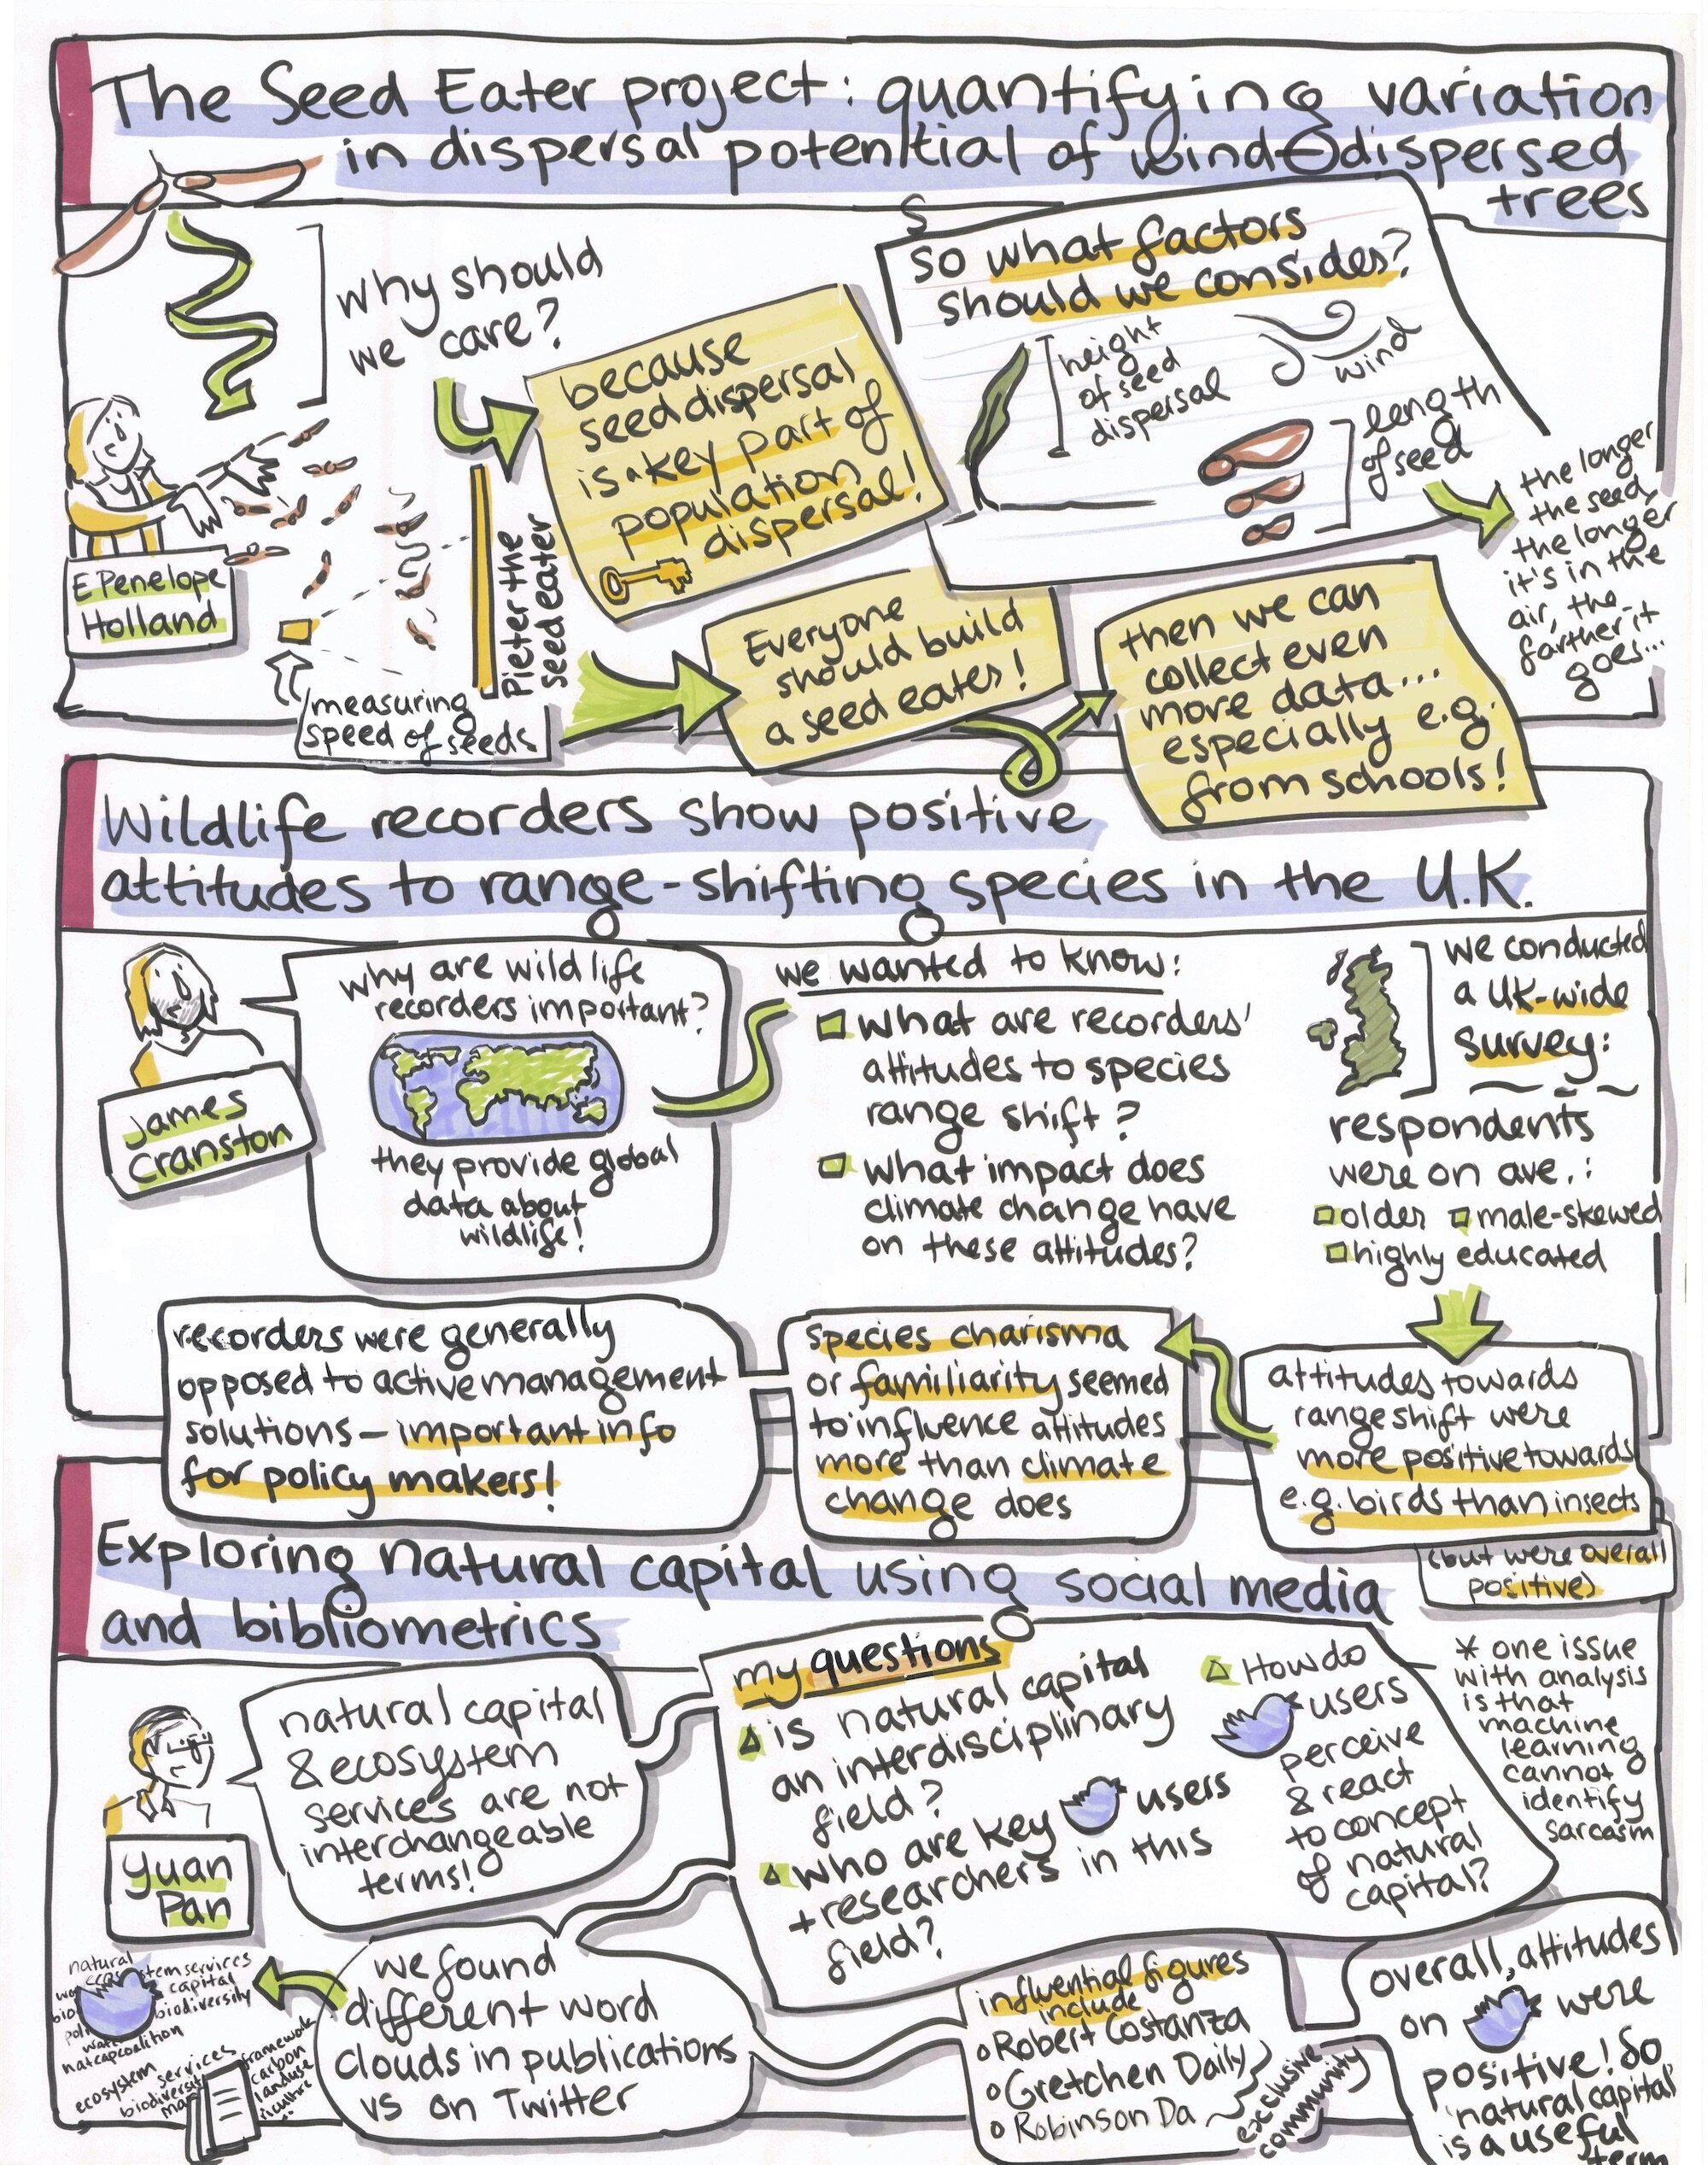 The Seed Eater project: quantifying variation
in dispersal potential of wind-dispersed
trees
why should
we care?
because
seed dispersal
is a key part of
population
dispersal!
S
so what factors
should we consider?
height
of seed
dispersal
wind
length
of seed
the longer
the seed,
the longer
it's in the
air, the
farther it
goes...
E Penelope
Holland
Pieter the
seed eater
measuring
speed of seeds
Everyone
should build
a seed eater!
then we can
collect even
more data...
especially e.g.
from schools!
Wildlife recorders show positive
attitudes to range-shifting species in the U.K.
James
Cranston
why are wildlife
recorders important?
they provide global
data about
wildlife!
we wanted to know:
what are recorders'
attitudes to species
range shift?
what impact does
climate change have
on these attitudes?
we conducted
a UK-wide
survey:
respondents
were on ave.:
older male-skewed
highly educated
attitudes towards
range shift were
more positive towards
e.g. birds than insects
(but were overall
positive)
species charisma
or familiarity seemed
to influence attitudes
more than climate
change does
recorders were generally
opposed to active management
solutions – important info
for policy makers!
Exploring natural capital using social media
and bibliometrics
Yuan
Pan
natural capital
& ecosystem
services are not
interchangeable
terms!
my questions
is natural capital
an interdisciplinary
field?
who are key users
+ researchers in this
field?
How do
users
perceive
& react
to concept
of natural
capital?
* one issue
with analysis
is that
machine
learning
cannot
identify
sarcasm
we found
different word
clouds in publications
vs on Twitter
natural
stem services
capital
biodiversity
natcapcoalition
ecosystem
services
biodiversit
framework
carbon
landuse
influential figures
include
Robert Costanza
Gretchen Daily
Robinson Da
exclusive
community
overall, attitudes
on were
positive! So
'natural capital'
is a useful
term